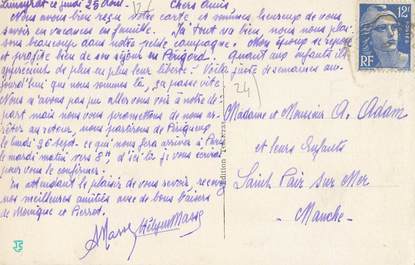 jeudi 25 Août.
Chers Amis,
Nous avons bien reçu votre carte et sommes heureux de vous
savoir en vacances en famille. Ici tout va bien, nous nous plai-
sons beaucoup dans notre petite campagne. Mon époux se repose
et profite bien de son séjour en Périgord. Quant aux enfants ils
apprécient de plus en plus leur liberté. Voilà juste semaines au-
jourd'hui que nous sommes là, ça passe vite.
Nous n'avons pas pu aller vous voir à notre dé-
part mais nous vous promettons de nous ar-
rêter au retour, nous partirons de Périgueux
le lundi 26 sept. ce qui nous fera arriver à Paris
le mardi matin vers 8h, d'ici là je vous écrirai
pour vous le confirmer.
En attendant le plaisir de vous revoir, recevez
nos meilleures amitiés avec de bons baisers
de Monique et Pierrot.
12F
RF
Madame et Monsieur A. Adam
et leurs Enfants
Saint Pair sur Mer
- Manche -
24